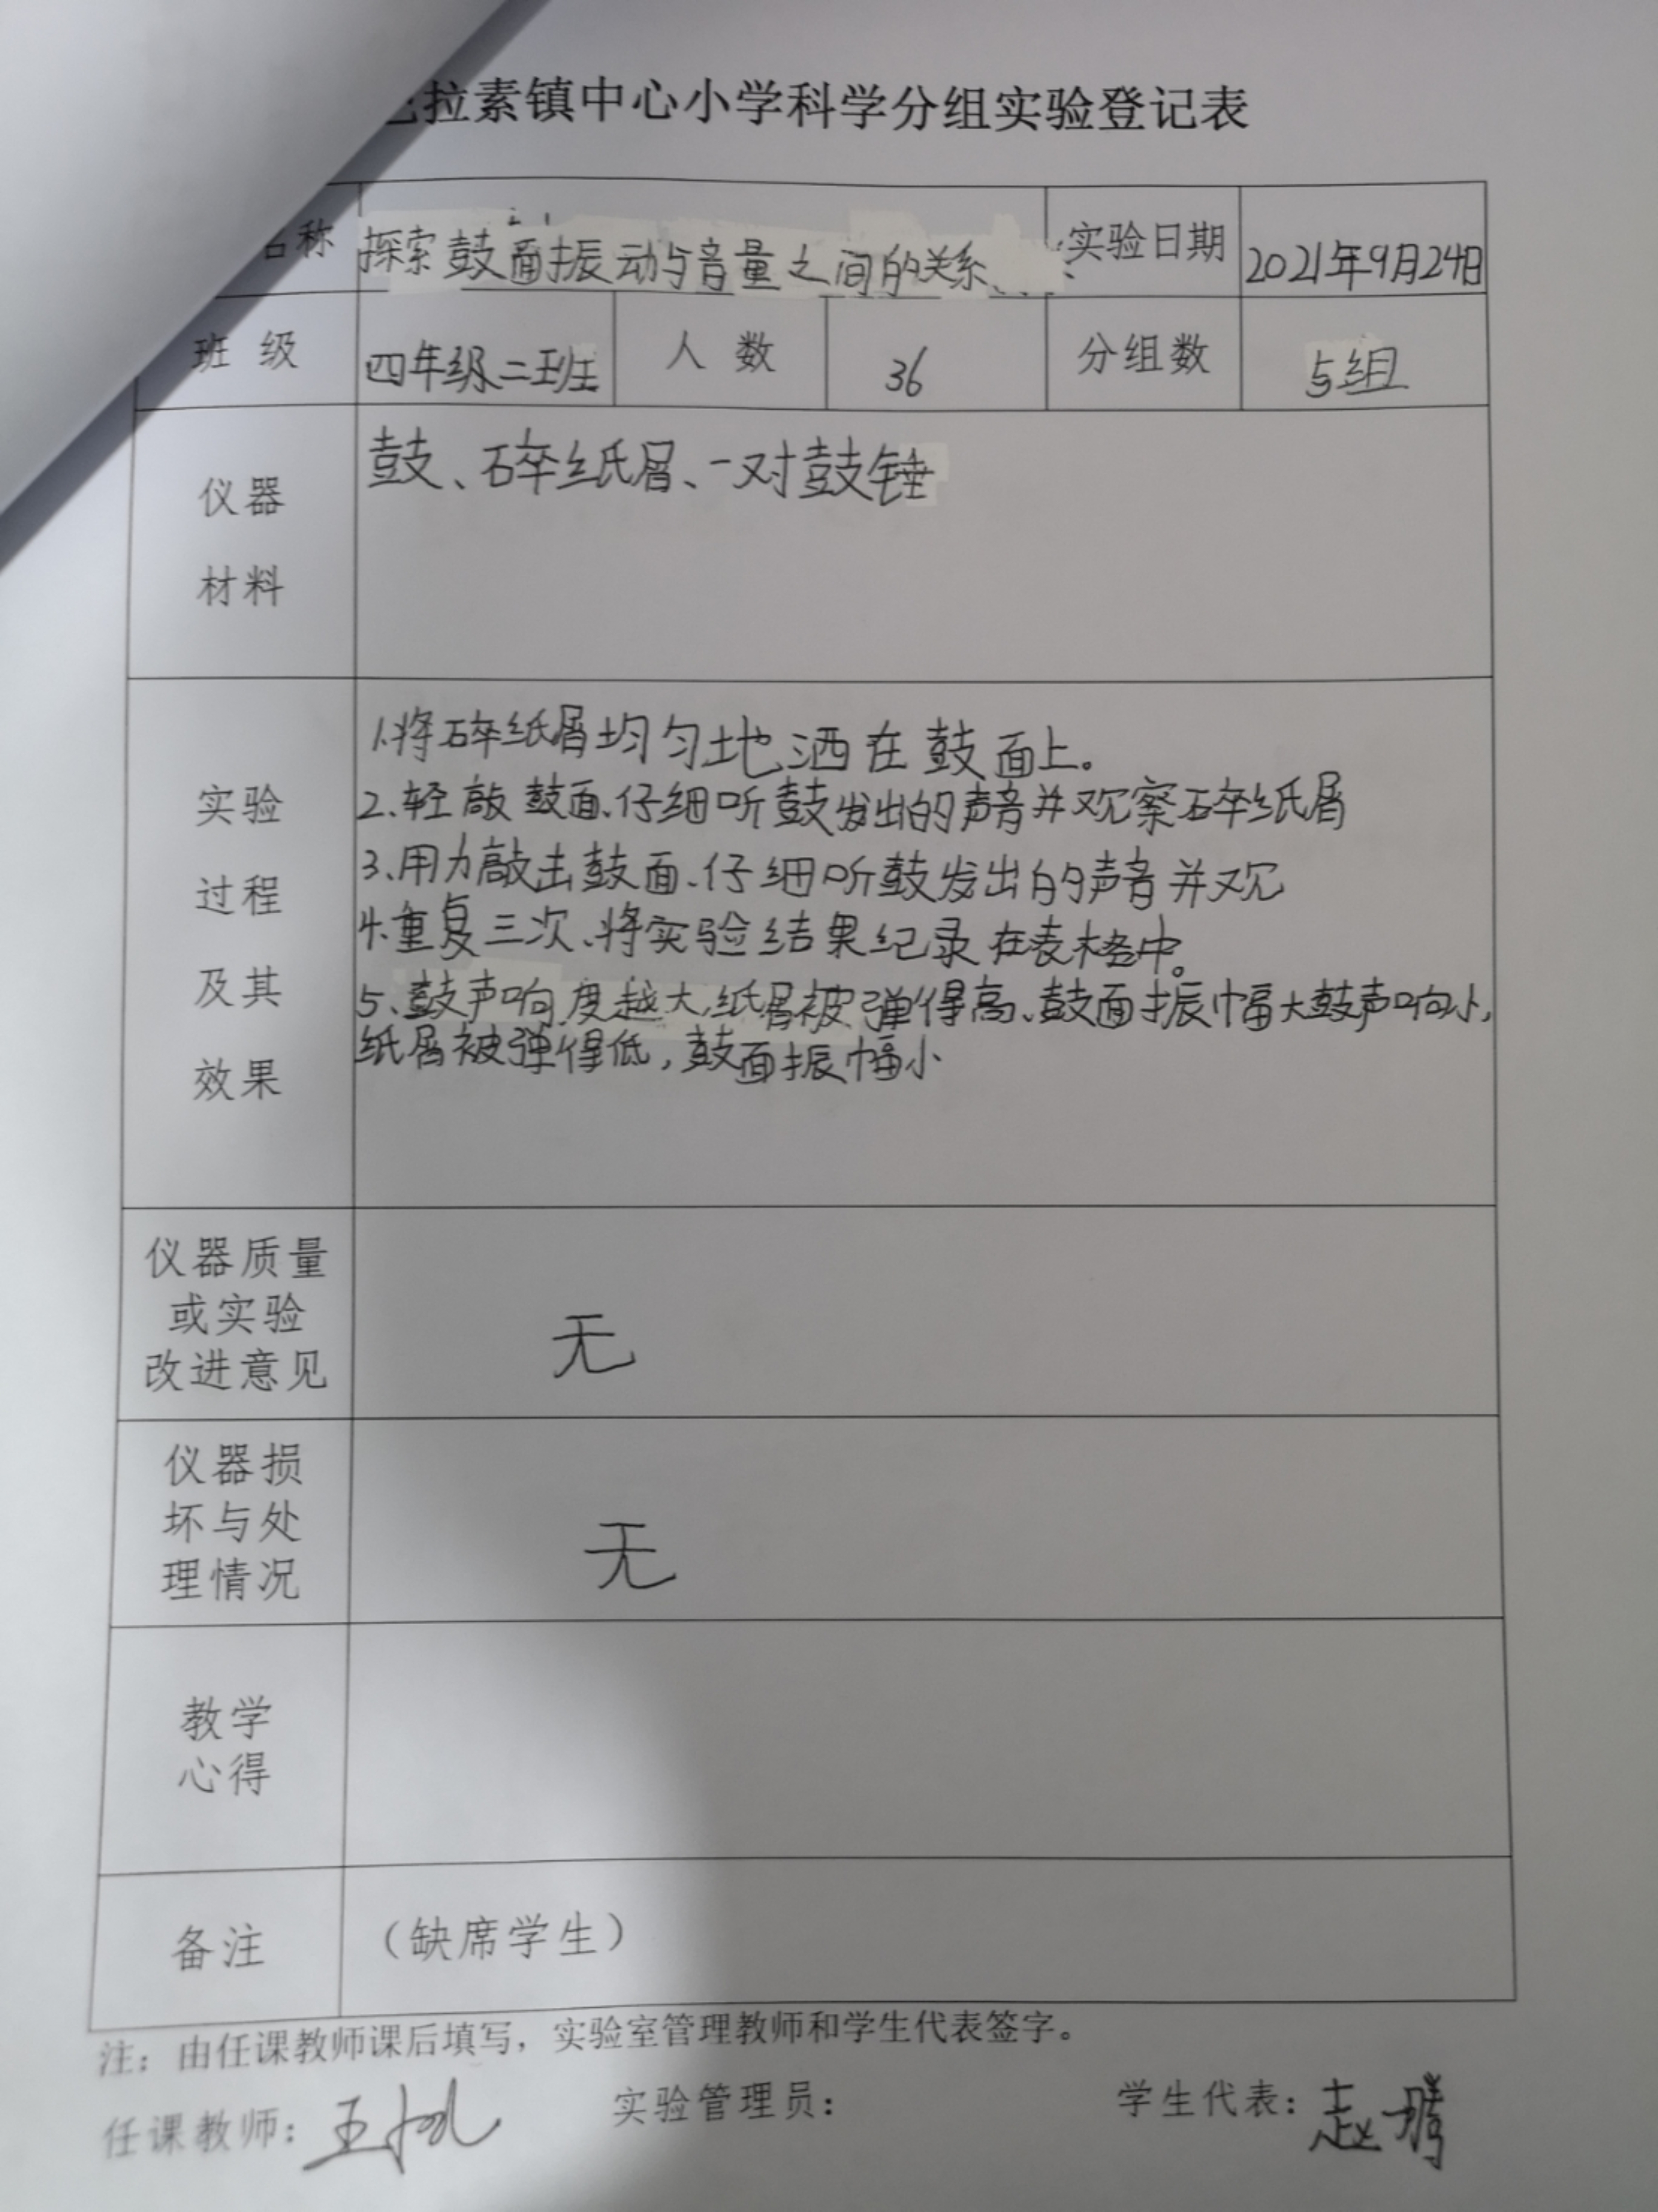 拉素镇中心小学科学分组实验登记表
名称 探索鼓面振动与音量之间的关系、 实验日期 2021年9月24日
班级 四年级二班 人数 36 分组数 5组
仪器 鼓、碎纸屑、一对鼓锤
材料
1.将碎纸屑均匀地洒在鼓面上。
实验 2、轻敲鼓面、仔细听鼓发出的声音并观察碎纸屑
过程 3.用力敲击鼓面、仔细听鼓发出的声音并观
4.重复三次、将实验结果纪录在表格中。
及其 5、鼓声响度越大,纸屑被弹得高、鼓面振幅大鼓声响小,
效果 纸屑被弹得低,鼓面振幅小
仪器质量
或实验 无
改进意见
仪器损
坏与处 无
理情况
教学
心得
备注 （缺席学生）
注：由任课教师课后填写，实验室管理教师和学生代表签字。
任课教师：王 实验管理员： 学生代表：赵